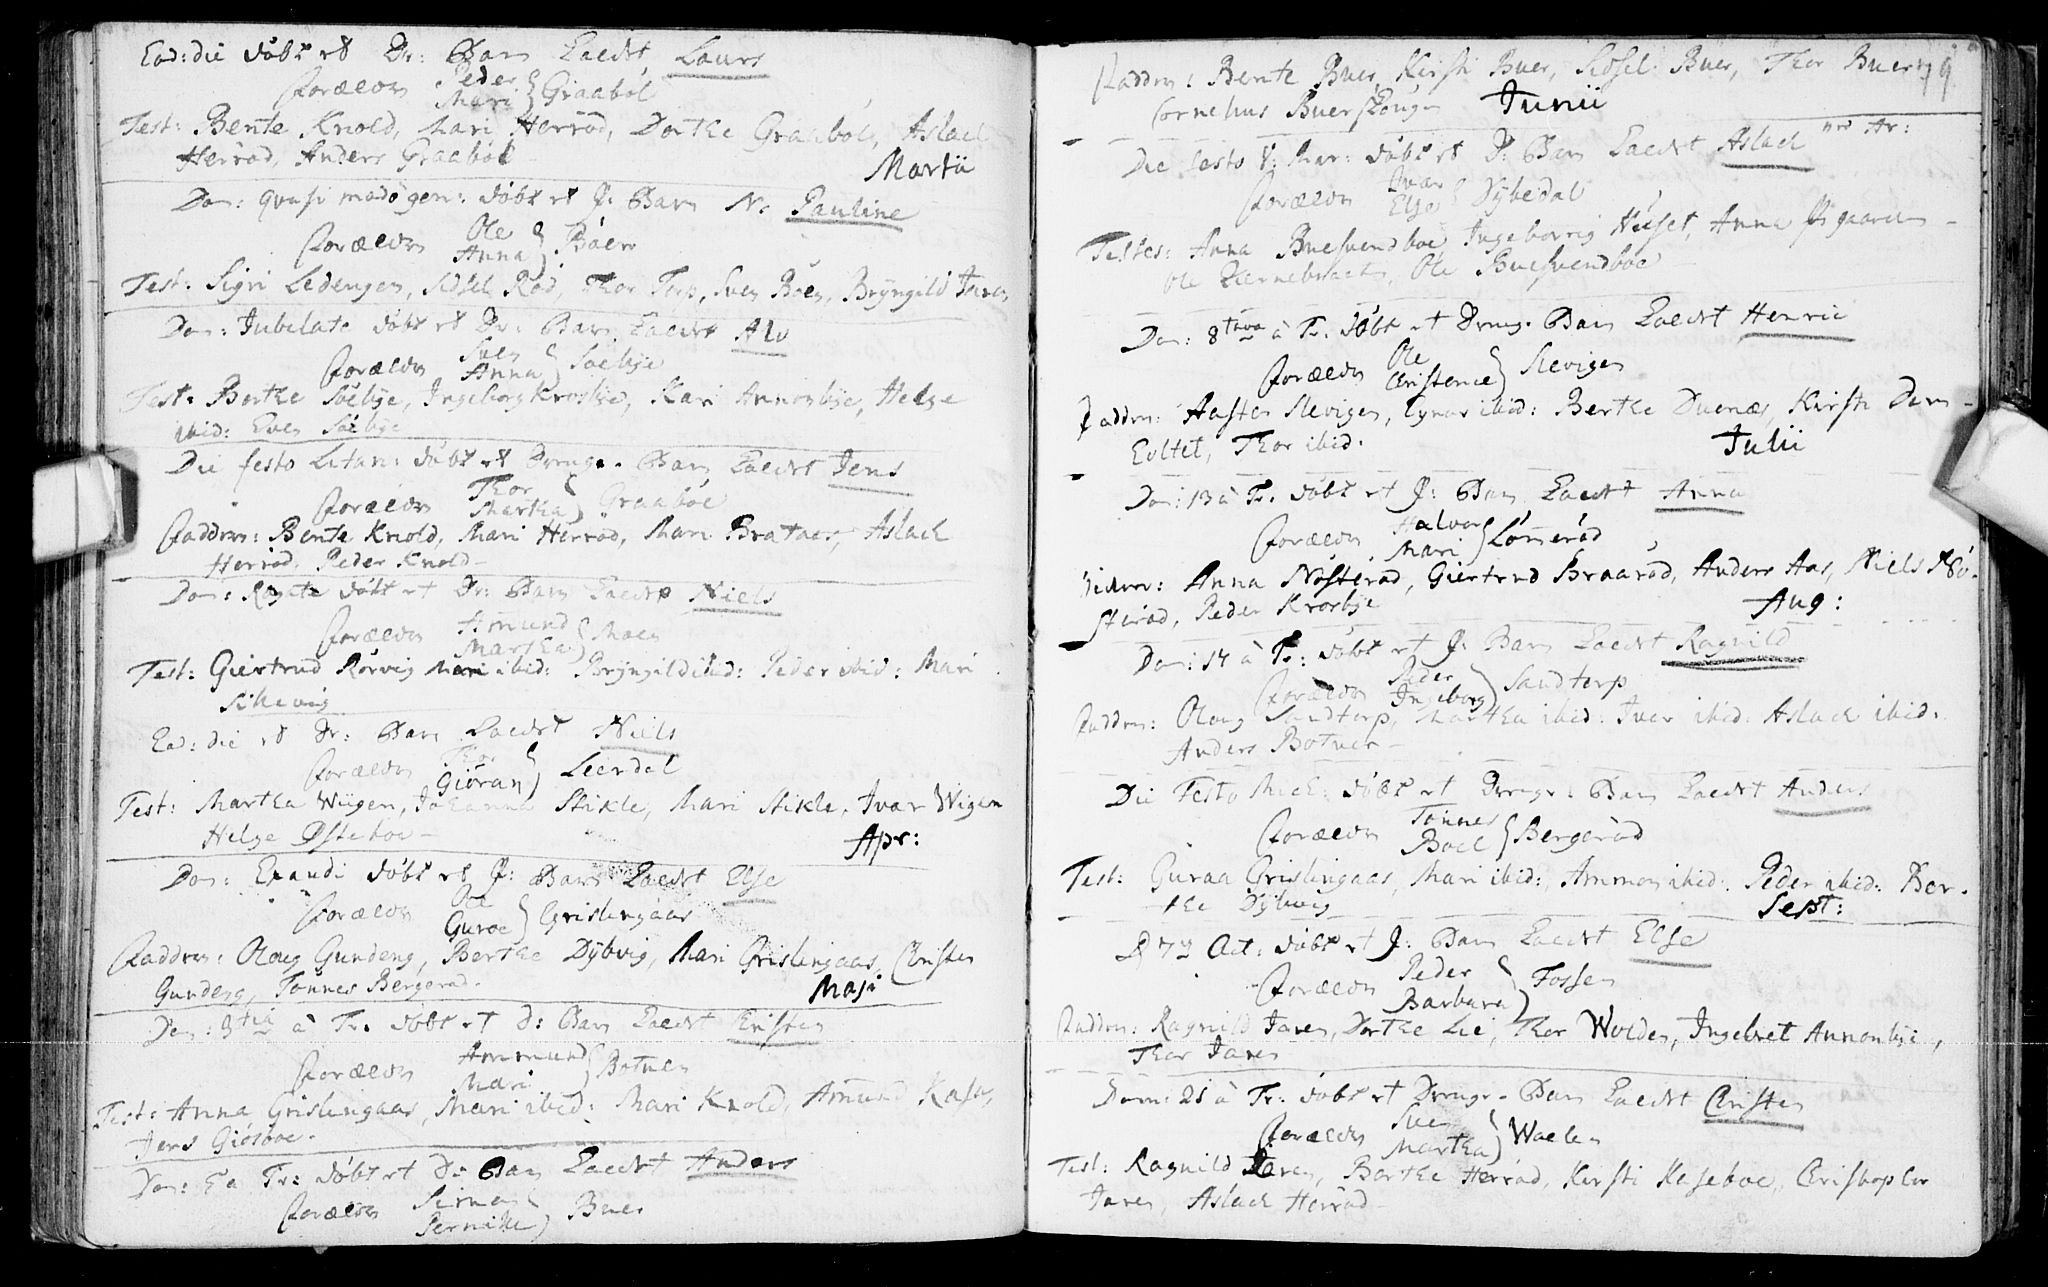 Ead: die døbt et Dr: Barn kaldet Laurs
Forældre Peder Mari } Graabøl
Test: Bente Knold, Mari Herrød, Dorthe Graabøl, Aslach
Herrød, Anders Graabøl
Martii
Dom: quasi modogen: døbt et P: Barn N. Pauline
Forældre Ole Anna } Boen
Test: Sigri Ledengen, Sidsel Rød, Thor Torp, Sven Boen, Bryngild Jaren
Dom: Jubilate døbt et Dr: Barn kaldet Alv
Forældre Sven Anna } Soelbye
Test: Berthe Soelbye, Ingeborg Krosbye, Kari Annonbye, Helge
ibid: Even Soelbye
Die festo Litan: døbt et Drenge-Barn kaldet Jens
Forældre Thor Martha } Graabøe
Faddere: Bente Knold, Mari Herrød, Mari Bratner, Aslach
Herrød, Peder Knold
Dom: Rogate døbt et Dr: Barn kaldet Niels
Forældre Amund Martha } Moen
Test: Giertrud Rørvig Mari ibid: Bryngild ibid: Peder ibid: Mari
Sikevig
Ead: die et Dr: Barn kaldet Niels
Forældre Thor Giøran } Leerdal
Test: Martha Wiigen, Johanna Stikle, Mari Stikle, Ivar Wigen
Helge Østeboe
Apr:
Dom: Exaudi døbt et P: Barn kaldet Else
Forældre Ole Guroe } Grislingaas
Faddere: Olaug Gundeng, Berthe Dybvig, Mari Grislingaas, Christen
Gundeng, Tønnes Bergerød.
Maji
Dom: 3tia à Tr. døbt et D: Barn kaldet Christen
Forældre Ammund Mari } Botnen
Test: Anna Grislingaas, Mari ibid: Mari Knold, Amund Kasa,
Jens Giøsboe.
Dom: 6a Tr: døbt et D: Barn kaldet Anders
Forældre Simon Pernille } Buer
Faddere: Bente Buer, Kirsti Buer, Sidsel Buer, Thor Buer
79
Cornelius Buer
Junii
Die festo V: Mar: døbt et P: Barn kaldet Aslach
Forældre Ivar Else } Dybedal
Testes: Anna Buesvendboe Ingeborrig Huset, Anna
Ole Kiernebraaten, Ole Buesvendboe
Dom: 8tava à Tr. døbt et Drenge-Barn kaldet Henric
Forældre Ole Christence } Slevigen
Faddere: Aasten Slevigen, ibid: Berthe Duenæs, Kirsti Dam-
Eultet, Thor ibid.
Julii
Dom: 13 à Tr. døbt et P: Barn kaldet Anna
Forældre Halvor Mari } Lønnerød
Anna Nøsterød, Giertrud Braarød, Anders Aas, Niels Nø-
sterød, Peder Krosbye
Aug:
Dom: 14 à Tr: døbt et P: Barn kaldet Ragnild
Forældre Peder Ingeborg } Sandtorp
Faddere: Olaug Sandtorp, Martha ibid: Iver ibid: Aslach ibid:
Anders Botner
Die Festo Mich: døbt et Drenge-Barn kaldet Anders
Forældre Tønnes Boel } Bergerød
Test: Guraa Grislingaas, Mari ibid: Ammon ibid: Peder ibid: Ber-
the Dybvig
Sept:
D 7 Oct: døbt et P: Barn kaldet Else
Forældre Peder Barbara } Fossen
Faddere: Ragnild Jaren, Dorthe Lie, Thor Wolden, Ingebret Annonbye,
Thor Jaren
Dom: 21 à Tr: døbt et Drenge-Barn kaldet Christen
Forældre Sven Martha } Woelen
Test: Ragnild Jaren, Berthe Herrød, Kirsti Keseboe, Christopher
Jaren, Aslach Herrød